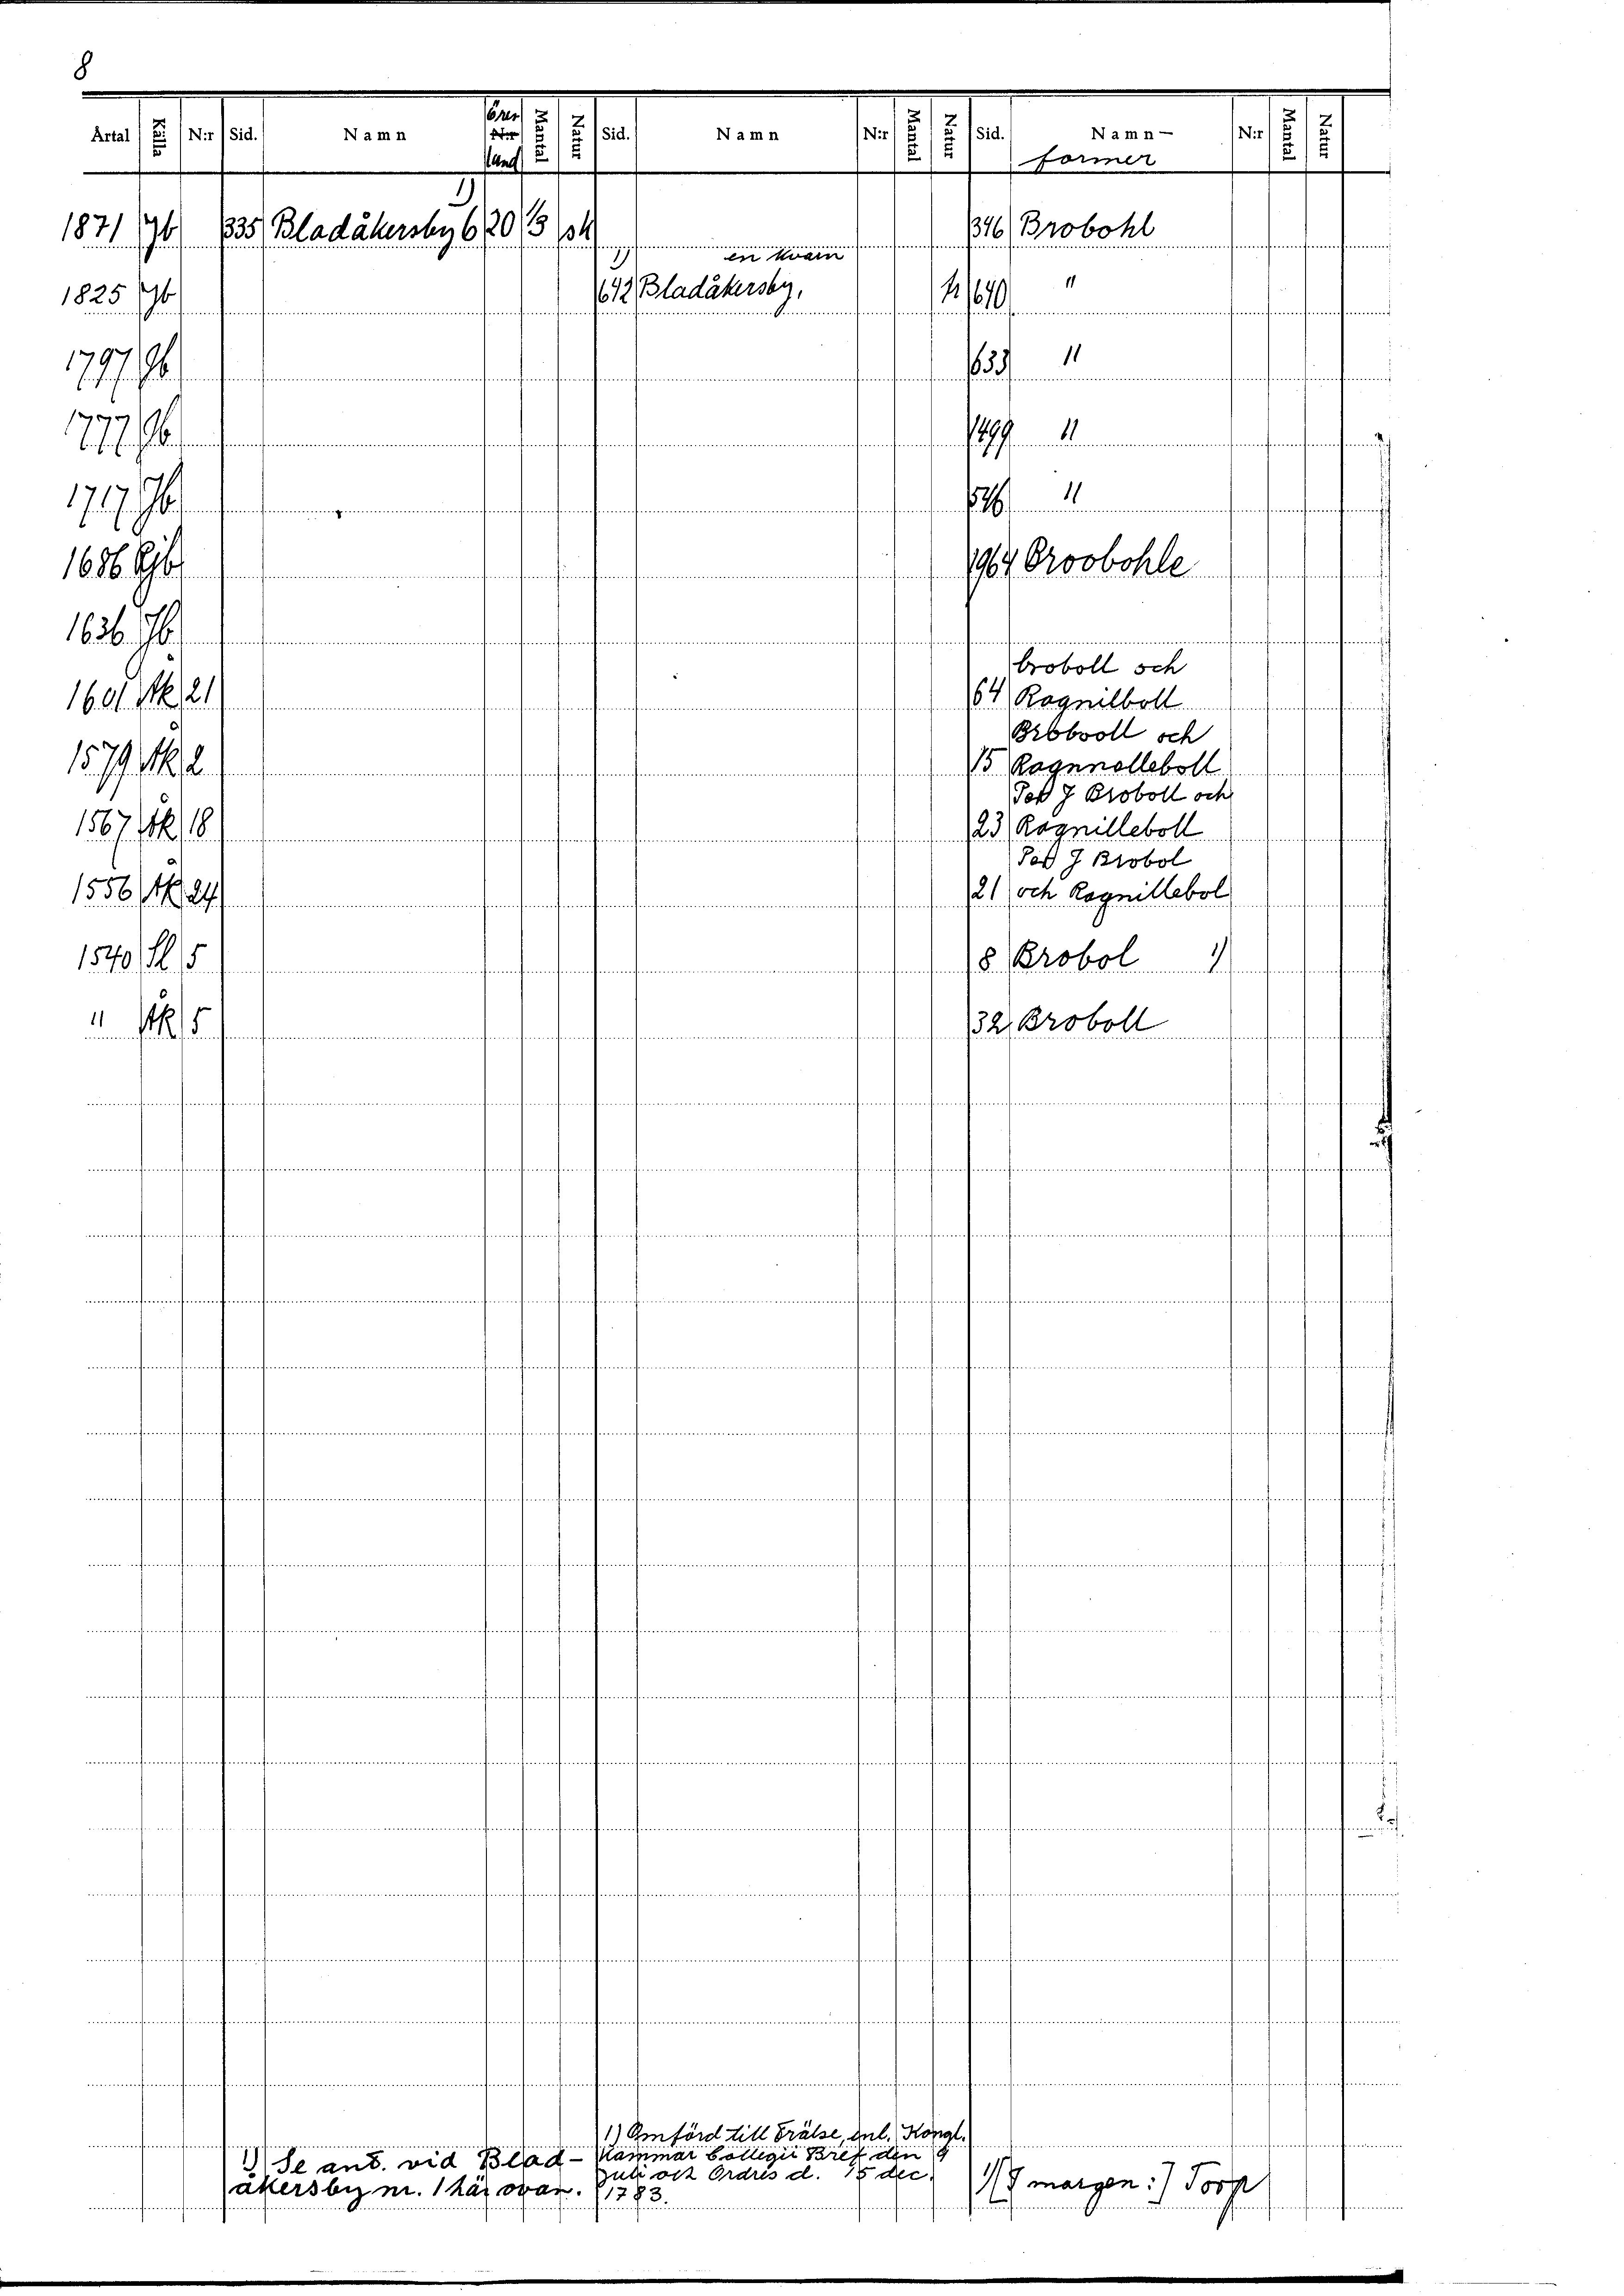 8
Årtal Källa N:r Sid. Namn Öres N:r land Mantal Natur Sid. Namn N:r Mantal Natur Sid. Namn- N:r Mantal Natur
former
1)
1871 Jb 335 Bladåkersby 6 20 1/3 sk 346 Brobohl
1) en kvarn
1825 Jb 642 Bladåkersby, 640 "
1797 Jb 633 "
1777 Jb 1499 "
1717 Jb 546 "
1686 Rjb 1964 Broobohle
1636 Jb
broboll och
1601 Åk 21 64 Ragnilboll
Brobooll och
1579 Åk 2 15 Ragnnolleboll
J Broboll och
1567 Åk 18 23 Ragnilleboll
J Brobol
1556 Åk 24 21 och Ragnillebol
1540 Sl 5 8 Brobol 1)
" Åk 5 32 Broboll
1) Omförd till Frälse, enl. Kongl.
Kammar Collegii Bref den 9
juli och Ordres d. 15 dec.
1783.
1) Se ant. vid Blad-
åkersby nr. 1 här ovan.
1) [I margen:] Torp